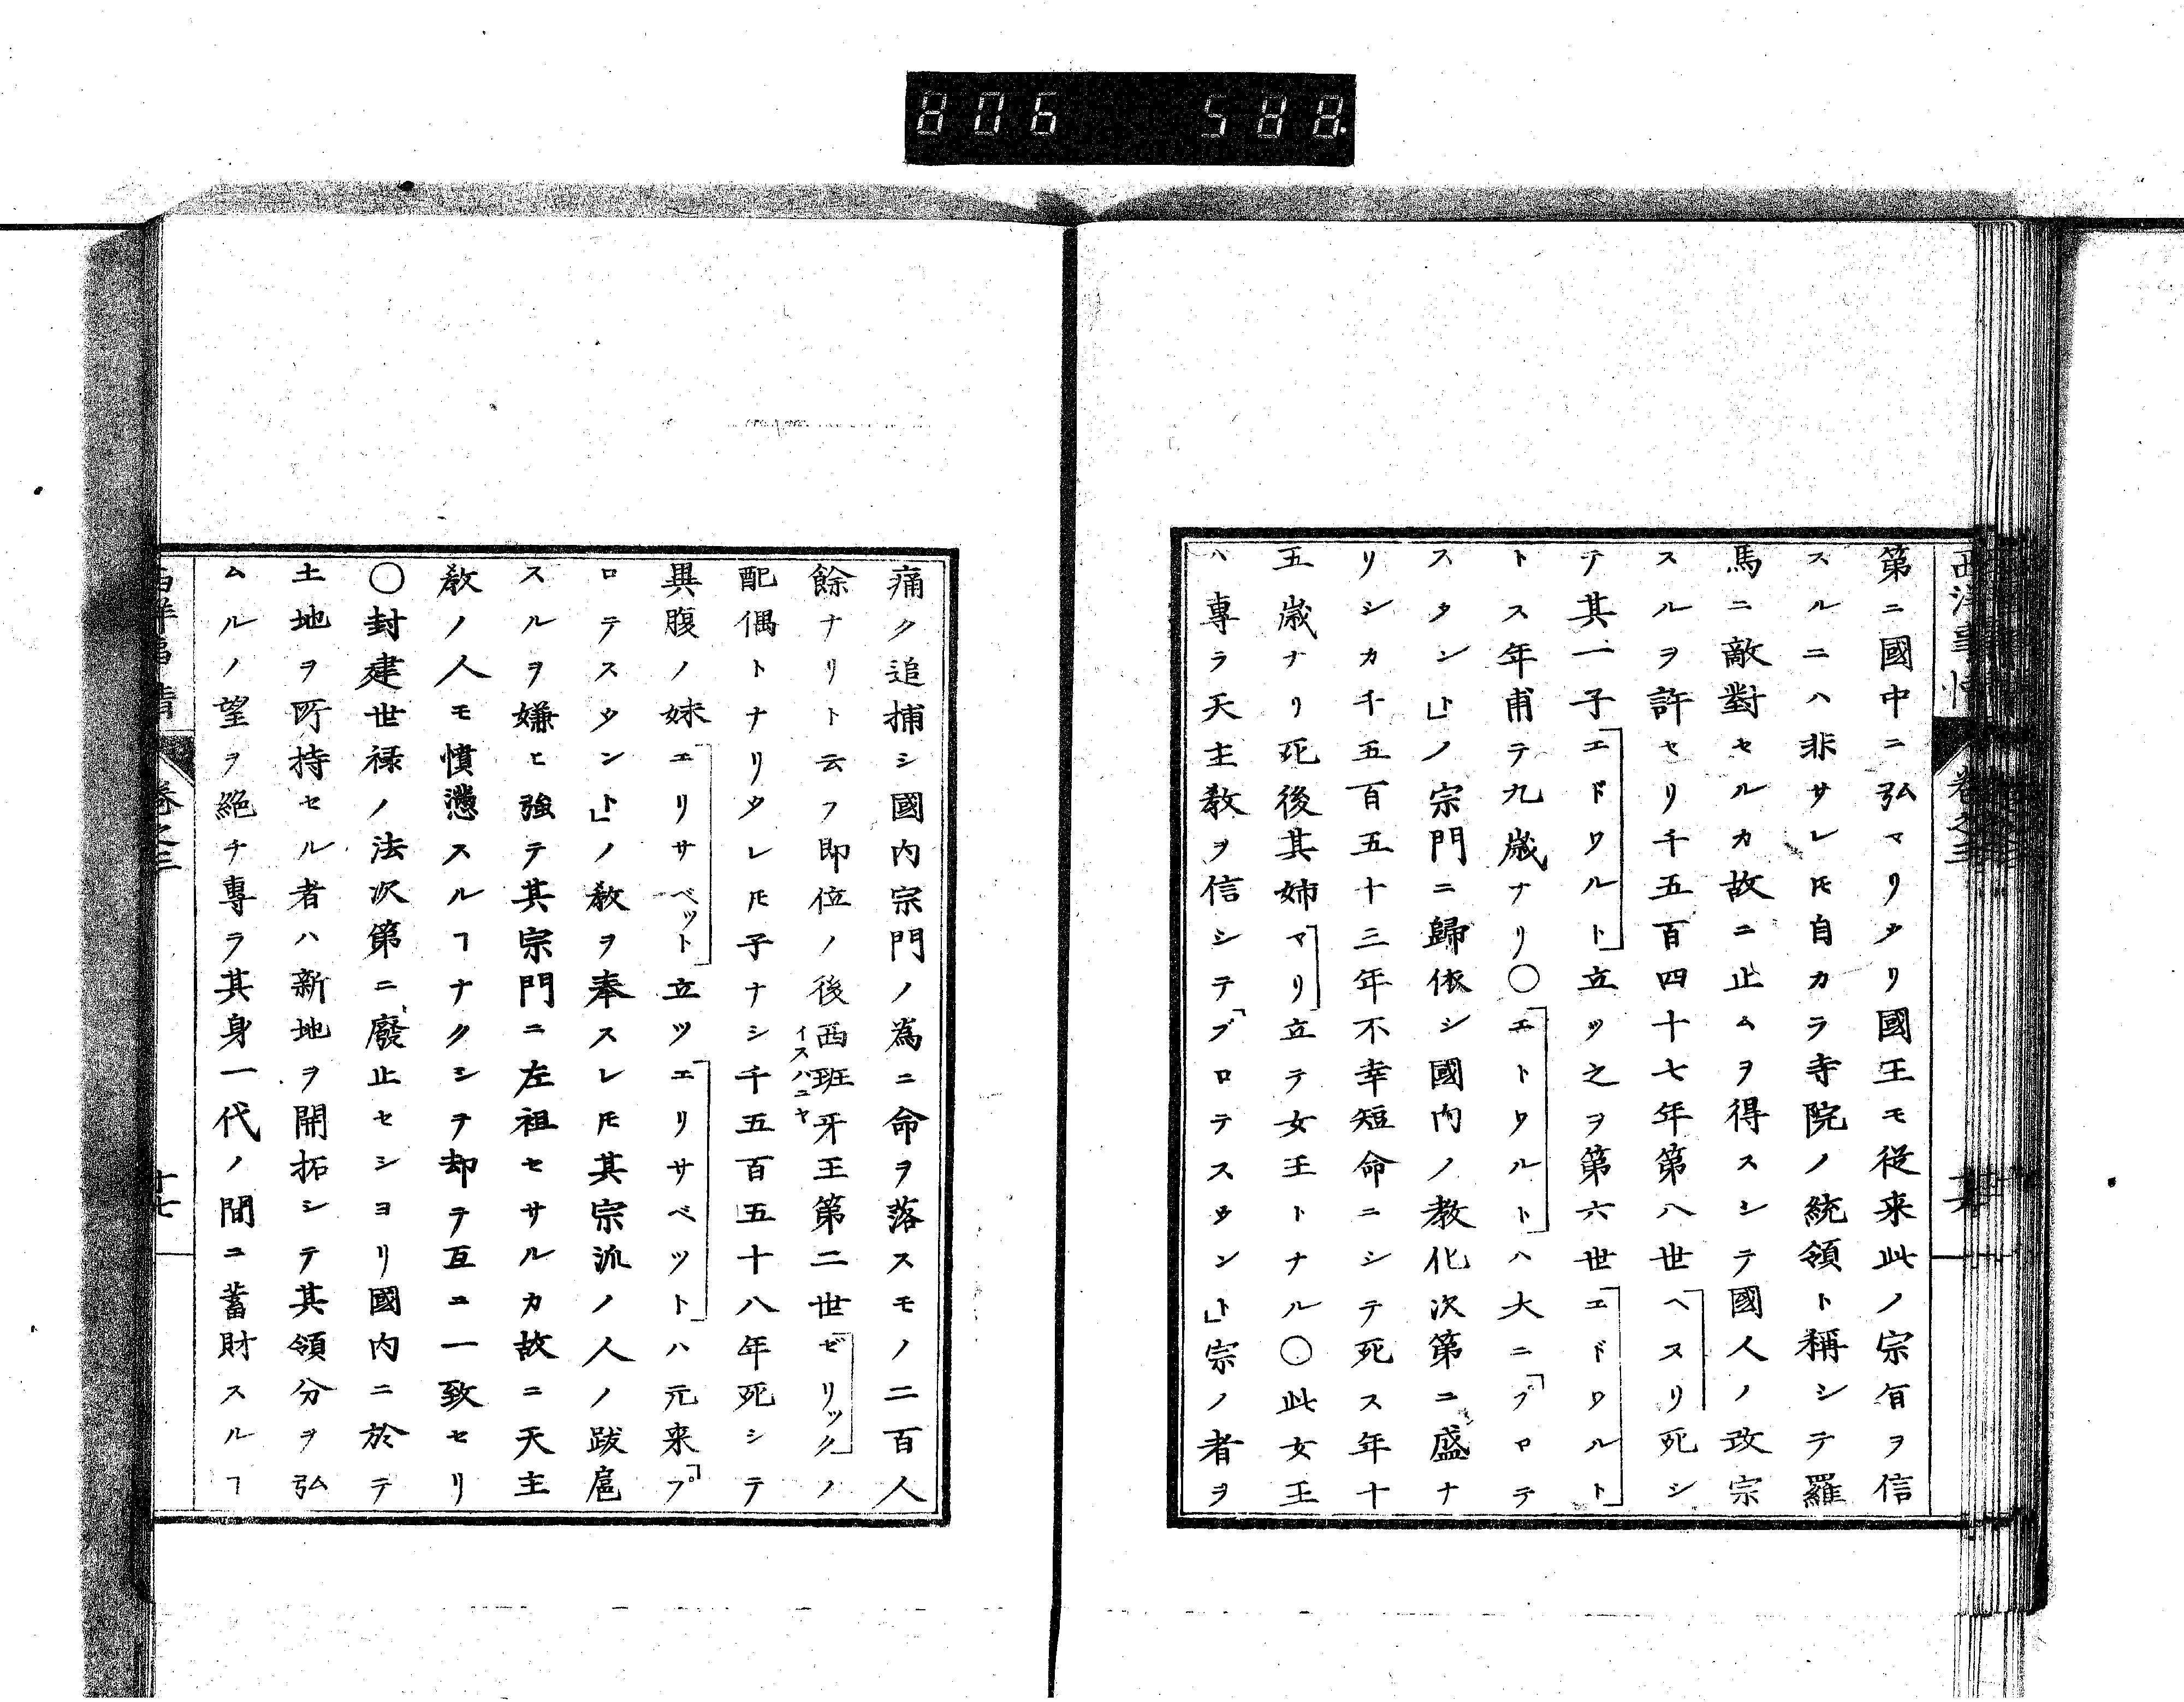 806 588.
第ニ國中ニ弘マリタリ國王モ從来此ノ宗旨ヲ信
スルニハ非サレ𪜈自カラ寺院ノ統領ト稱シテ羅
馬ニ敵對セルカ故ニ止ムヲ得スシテ國人ノ改宗
スルヲ許セリ千五百四十七年第八世「ヘヌリ死シ
テ其一子「エドワルト」立ツ之ヲ第六世「エドワルト」
トス年甫テ九歳ナリ○「エトワルト」ハ大ニ「プロテ
スタント」ノ宗門ニ歸依シ國内ノ教化次第ニ盛ナ
リシカ千五百五十三年不幸短命ニシテ死ス年十
五歳ナリ死後其姉「マリ」立テ女王トナル○此女王
ハ專ラ天主教ヲ信シテ「プロテスタント」宗ノ者ヲ
痛ク追捕シ國内宗門ノ為ニ命ヲ落スモノ二百人
餘ナリト云フ即位ノ後西班牙王第二世「ゼリック」ノ
イスパニヤ
配偶トナリタレ𪜈子ナシ千五百五十八年死シテ
異腹ノ妹「エリサベット」立ツ「エリサベット」ハ元来「プ
ロテスタント」ノ教ヲ奉スレ𪜈其宗流ノ人ノ跋扈
スルヲ嫌ヒ強テ其宗門ニ左袒セサルカ故ニ天主
教ノ人モ憤懣スルヿナクシテ却テ互ニ一致セリ
○封建世禄ノ法次第ニ廢止セシヨリ國内ニ於テ
土地ヲ所持セル者ハ新地ヲ開拓シテ其領分ヲ弘
ムルノ望ヲ絶チ專ラ其身一代ノ間ニ蓄財スルヿ